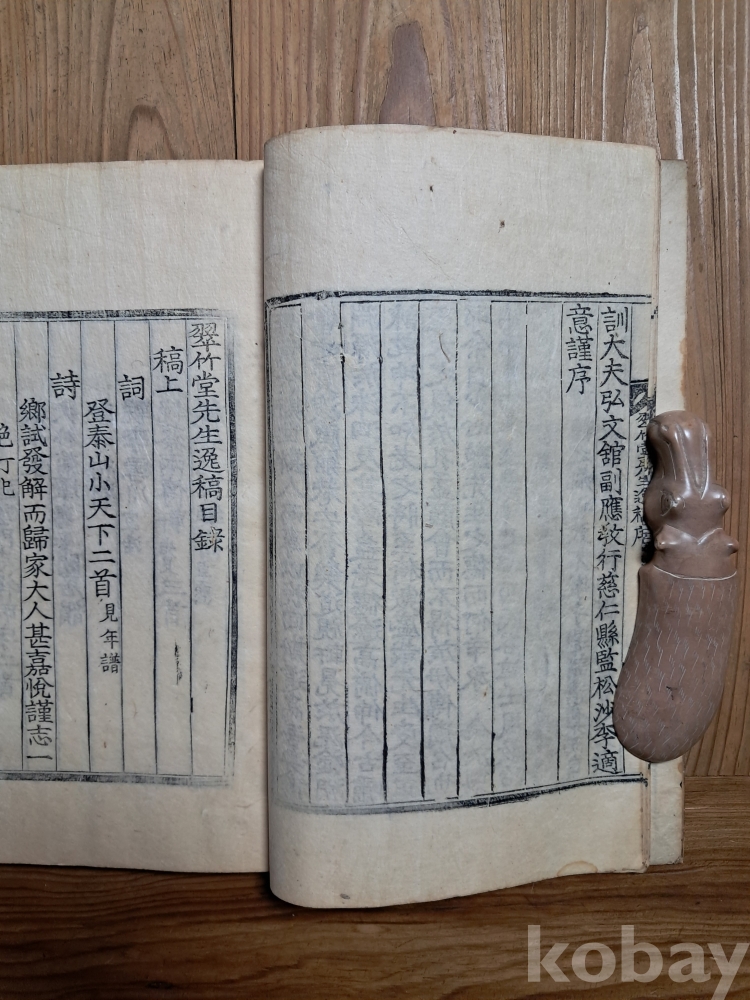 訓大夫弘文舘副應敎行慈仁縣監松沙李適
意謹序
翠竹堂先生逸稿序
翠竹堂先生逸稿目録
稿上
詞
登泰山小天下二首 見年譜
詩
鄉試發解而歸家大人甚嘉悅謹志一
絶
kobay